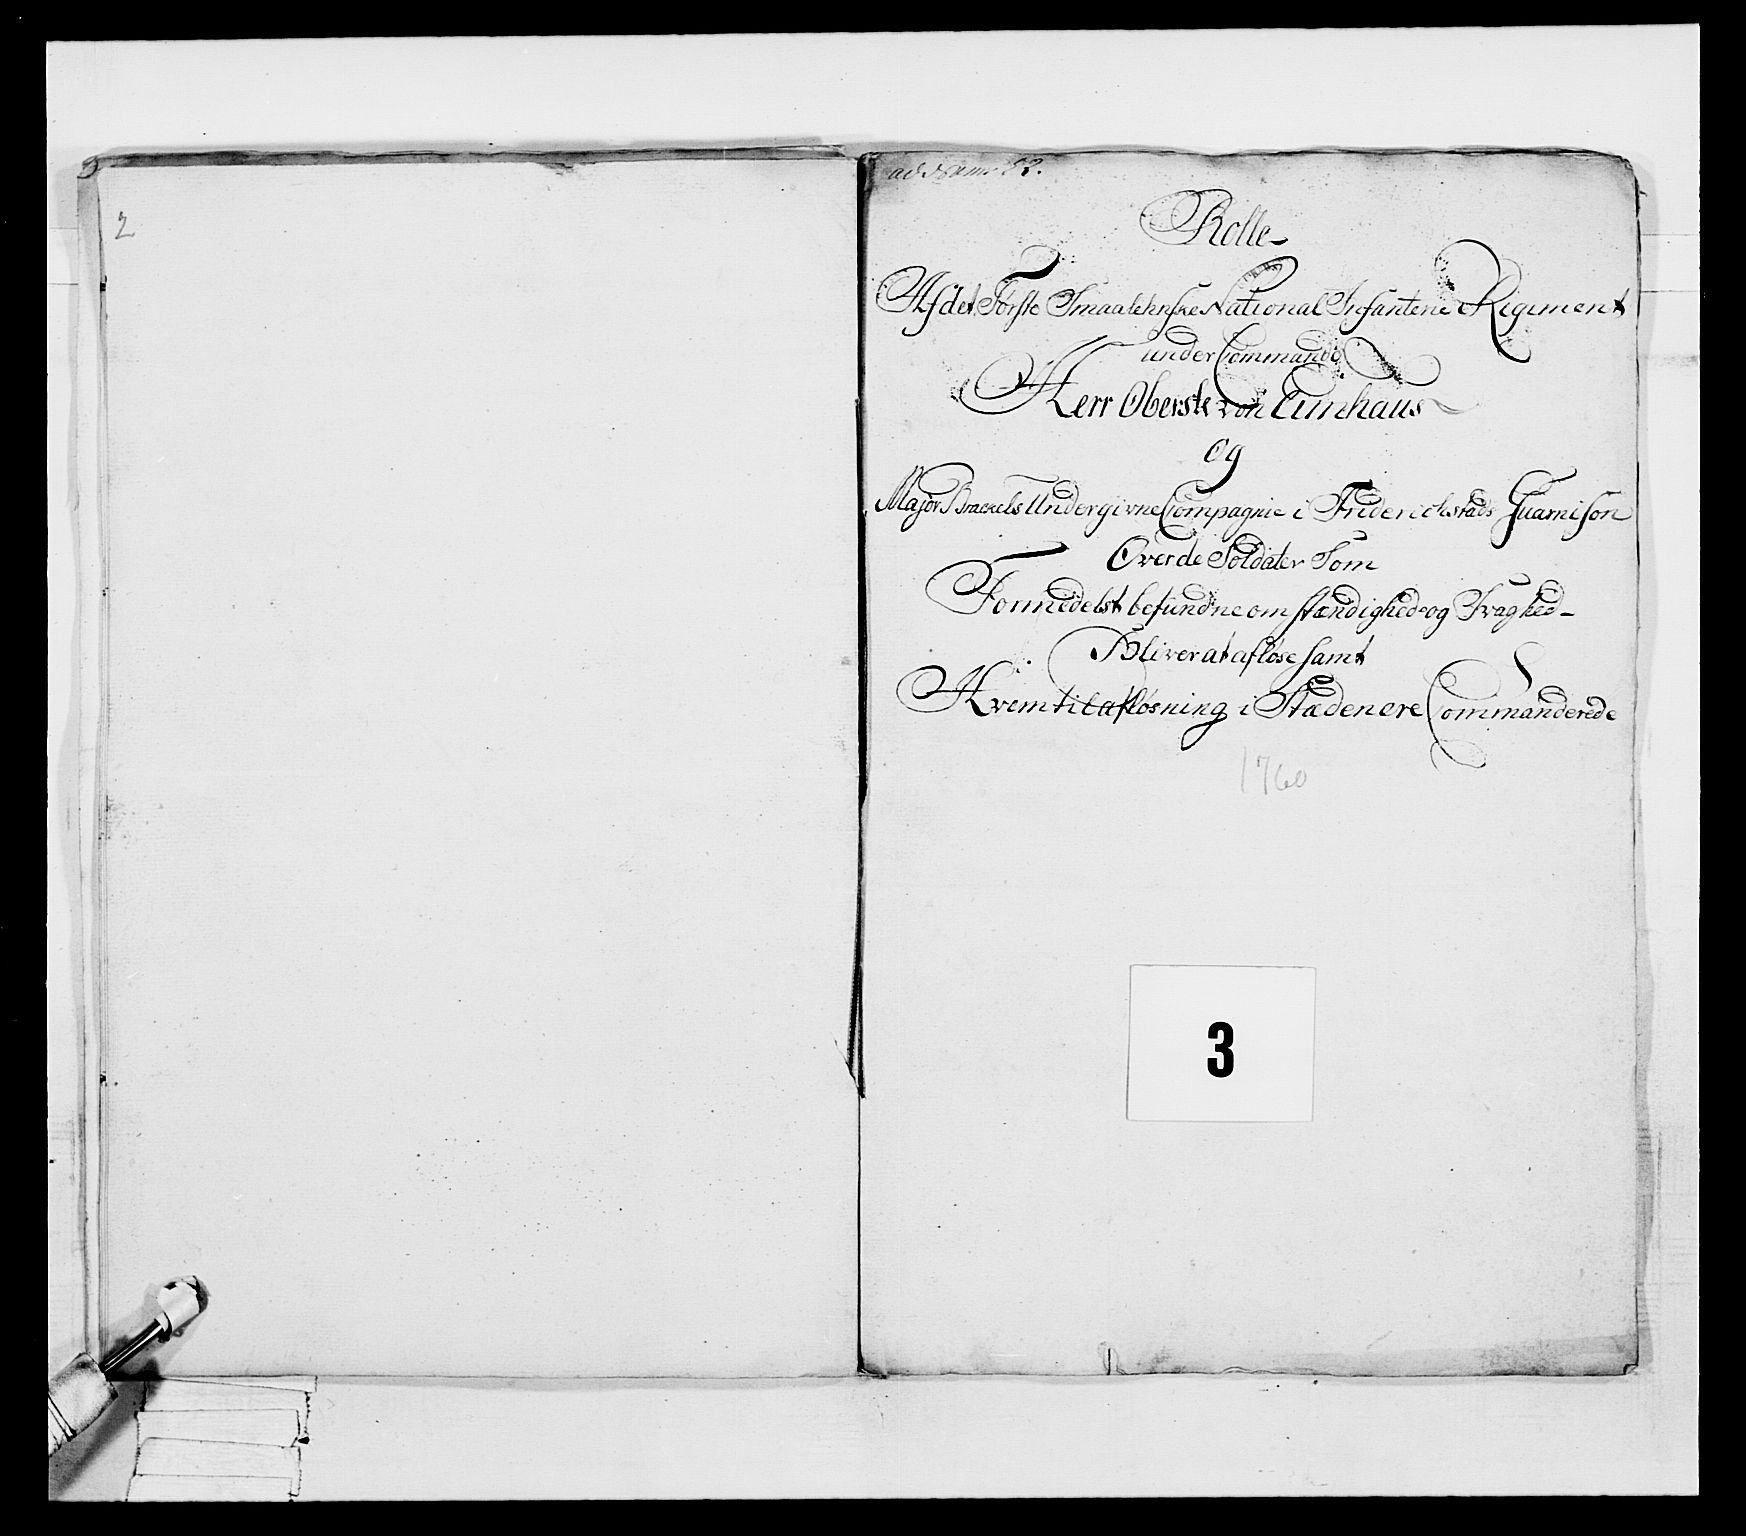 2
ad Num: 82.
Rolle
Af det Förste Smaalehnske National Infanterie Regiment
under Commando
Herr Oberste von Eimhaus
og
Major Brackels Undergivne Compagnie i Friderichstads Guarnison
Over de Soldater Som
Formedelst befundne omstændighed og Svaghed
Bliver at aflöse samt
Hvem til aflösning i Stæden ere Commanderede
1760
3